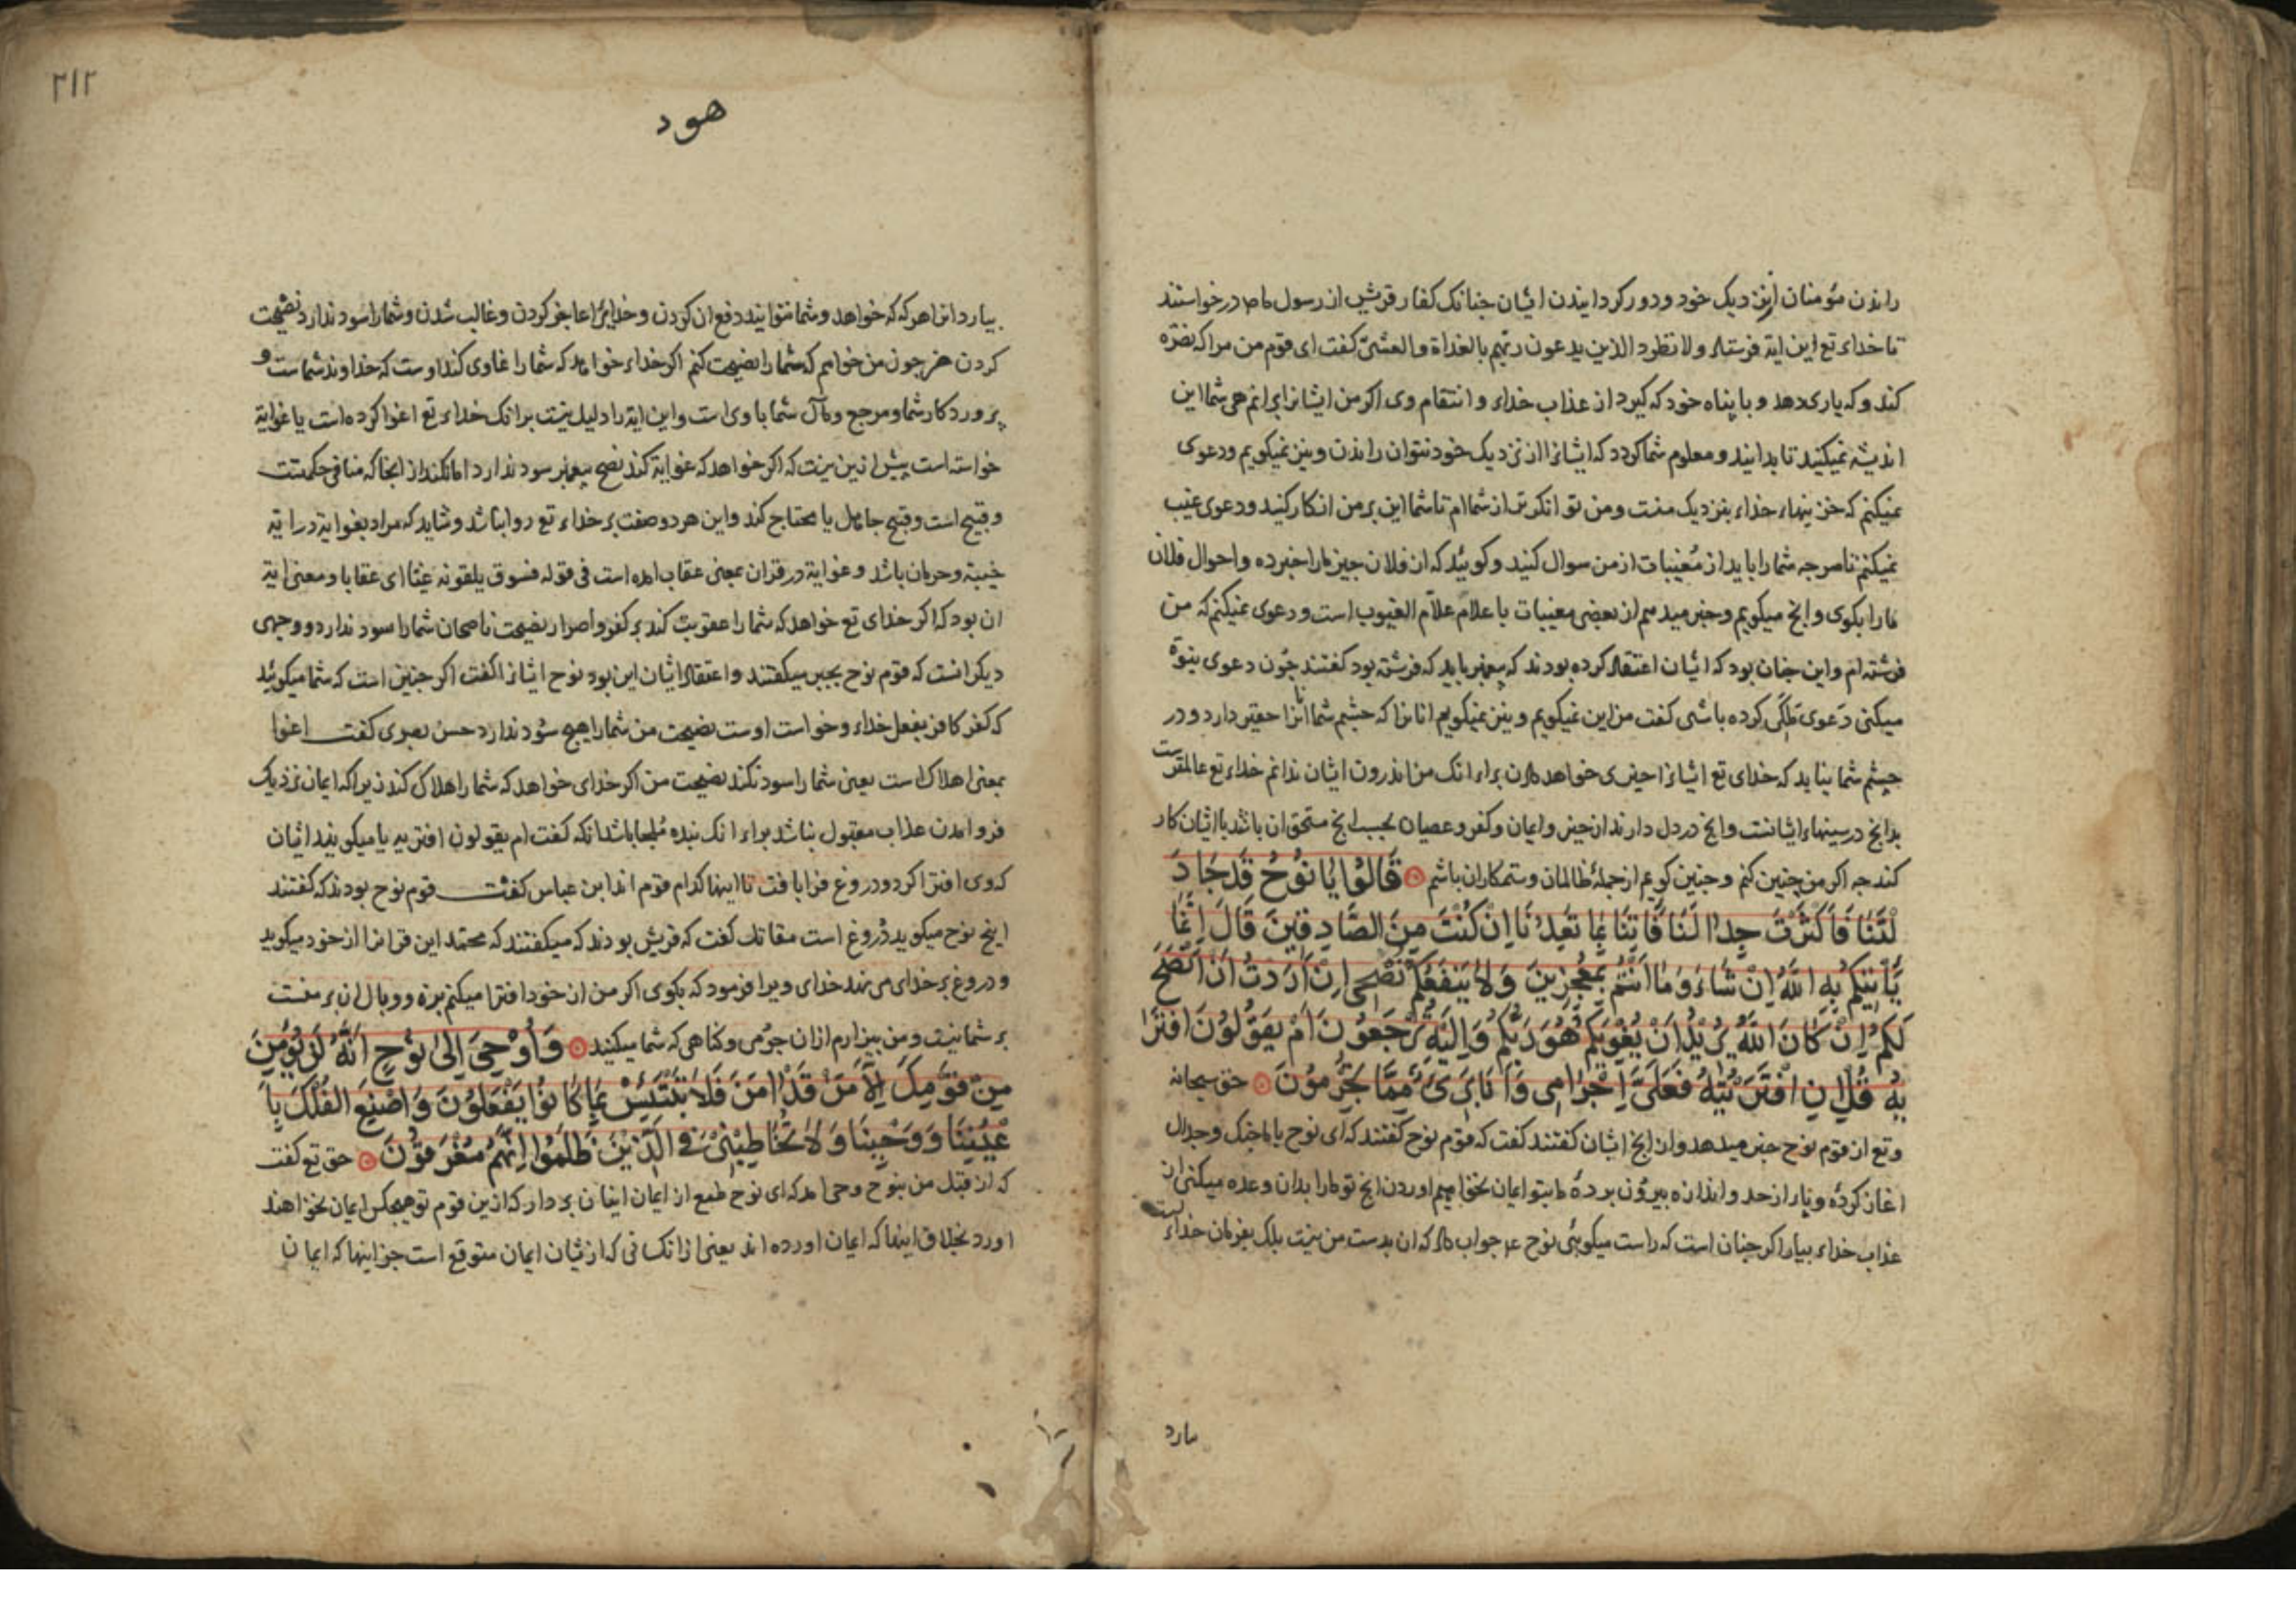 راندن مؤمنان از نزدیک خود و دور کردانیدن ایشان جنانک کفار قریش از رسول ما در خواستند
تا خداء تع این ایة فرستاد ولا تطرد الذین یدعون ربهم بالغداة والعشی کفت ای قوم من مرا که نصرة
کند و که یاری دهد و با پناه خود که کیرد از عذاب خداء و انتقام وی اکر من ایشانرا برانم هی شما این
اندیشه نمیکنید تا بدانید و معلوم شما کردد که ایشانرا از نزدیک خود نتوان راندن و نیز نمیکویم و دعوی
نمیکنم که خزینهاء خداء بنزدیک منست و من توانکرتر از شماام تا شما این بر من انکار کنید و دعوی غیب
نمیکنم تا هرجه شما را باید از مغیبات از من سوال کنید و کوئید که از فلان جیز ما را خبر ده و احوال فلان
ما را بکوی و انج میکویم و خبر میدهم از بعضی مغیبات با علام علام الغیوب است و دعوی نمیکنم که من
فرشته ام و این جنان بود که ایشان اعتقاد کرده بودند که پیغمبر باید که فرشته بود کفتند جون دعوی نبوة
میکنی دعوی ملکی کرده باشی کفت من این نمیکویم و نیز نمیکویم انانرا که جشم شما انرا حقیر دارد و در
جشم شما نیاید که خدای تع ایشانرا خیری نخواهد دادن براء انک من اندرون ایشان ندانم خداء تع عالمترست
بدانج در سینهاء ایشانست وانج در دل دارند از خیر و ایمان و کفر و عصیان بحسب انج مستحق ان باشند با ایشان کار
کند جه اکر من جنین کنم و جنین کویم از جملهٔ ظالمان و ستمکاران باشم قَالُوا یَا نُوحُ قَد جَادَ
لْتَنَا فَاَکْثَرْتَ جِدَالَنَا فَأتِنَا بِمَا تَعِدُنَا اِنْ کُنْتَ مِنَ الصَّادِقِینَ قَالَ اِنَّمَا
یَأتِیکُم بِهِ اللهُ اِنْ شَاءَ وَمَا اَنْتُم بِمُعْجِزِینَ وَلَا یَنْفَعُکُم نُصْحِی اِنْ اَرَدْتُ اَنْ اَنْصَحَ
لَکُم اِنْ کَانَ اللهُ یُرِیدُ اَنْ یُغْوِیَکُم هُوَ رَبُّکُم وَاِلَیْهِ تُرْجَعُونَ اَمْ یَقُولُونَ افْتَرَا
یهُ قُلْ اِنِ افْتَرَیْتُهُ فَعَلَیَّ اِجْرَامِی وَاَنَا بَرِیءٌ مِمَّا تُجْرِمُونَ حق سبحانه
و تع از قوم نوح خبر میدهد و از انج ایشان کفتند کفت که قوم نوح کفتند که ای نوح با ما جنک و جدال
اغاز کردهٔ و پا از حد و اندازه بیرون بردهٔ ما بتو ایمان نخواهیم اوردن انج تو ما را بدان وعده میکنی از
عذاب خداء بیار اکر جنان است که راست میکویی نوح ع جواب داد که ان بدست من نیست بلک بفرمان خداءست
مارد
٢١٢
هود
بیارد انرا هرکه که خواهد و شما نتوانید دفع ان کردن و خدایرا عاجز کردن و غالب شدن و شما را سود ندارد نصیحت
کردن من جون من خواهم که شما را نصیحت کنم اکر خداء خواهد که شما را غاوی کند اوست که خداوند شماست و
پروردکار شما و مرجع و مآل شما با وی است و این ایة را دلیل نیست برانک خداء تع اغوا کرده است یا غوایة
خواسته است بیش ازین نیست که اکر خواهد که غوایة کند نصح پیغمبر سود ندارد اما نکند از انجا که منافی حکمتست
و قبیح است و قبیح جاهل یا محتاج کند و این هر دو صفت بر خداء تع روا نباشد و شاید که مراد بغوایة در ایة
خیبة و حرمان باشد و غوایة در قران بمعنی عقاب امده است فی قوله فسوف یلقون غیا ای عقابا و معنی ایة
ان بود که اکر خدای تع خواهد که شما را عقوبت کند بر کفر و اصرار نصیحت ناصحان شما را سود ندارد و وجهی
دیکر انست که قوم نوح بجبر میکفتند و اعتقاد ایشان این بود نوح ایشانرا کفت اکر جنین است که شما میکوئید
که کفر کافر بفعل خداء و خواست اوست نصیحت من شما را هیج سود ندارد حسن بصری کفت اغوا
بمعنی اهلاک است یعنی شما را سود نکند نصیحت من اکر خدای خواهد که شما را هلاک کند زیراکه ایمان نزدیک
فرو امدن عذاب مقبول نباشد براء انک بنده ملجا باشد انکه کفت ام یقولون افتریه یا میکویند ایشان
که وی افترا کرد و دروغ فرا بافت تا اینها کدام قوم اند ابن عباس کفت قوم نوح بودند که کفتند
اینج نوح میکوید دروغ است مقاتل کفت که قریش بودند که میکفتند که محمد این قرانرا از خود میکوید
و دروغ بر خدای می نهد خدای ویرا فرمود که بکوی اکر من از خود افترا میکنم بزه و وبال ان بر منست
بر شما نیست و من بیزارم ازان جرمی و کناهی که شما میکنید وَاُوْحِیَ اِلَی نُوحٍ اَنَّهُ لَنْ یُؤْمِنَ
مِنْ قَوْمِکَ اِلَّا مَنْ قَدْ اٰمَنَ فَلَا تَبْتَئِسْ بِمَا کَانُوا یَفْعَلُونَ وَاصْنَعِ الْفُلْکَ بِاَ
عْیُنِنَا وَوَحْیِنَا وَلَا تُخَاطِبْنِی فِی الَّذِینَ ظَلَمُوا اِنَّهُم مُغْرَقُونَ حق تع کفت
که از قبل من بنوح وحی امد که ای نوح طمع از ایمان اینان بردار که ازین قوم تو هیجکس ایمان نخواهند
اورد بخلاف اینها که ایمان اورده اند یعنی ازانکسانی که ازیشان ایمان متوقع است جز اینها که ایمان